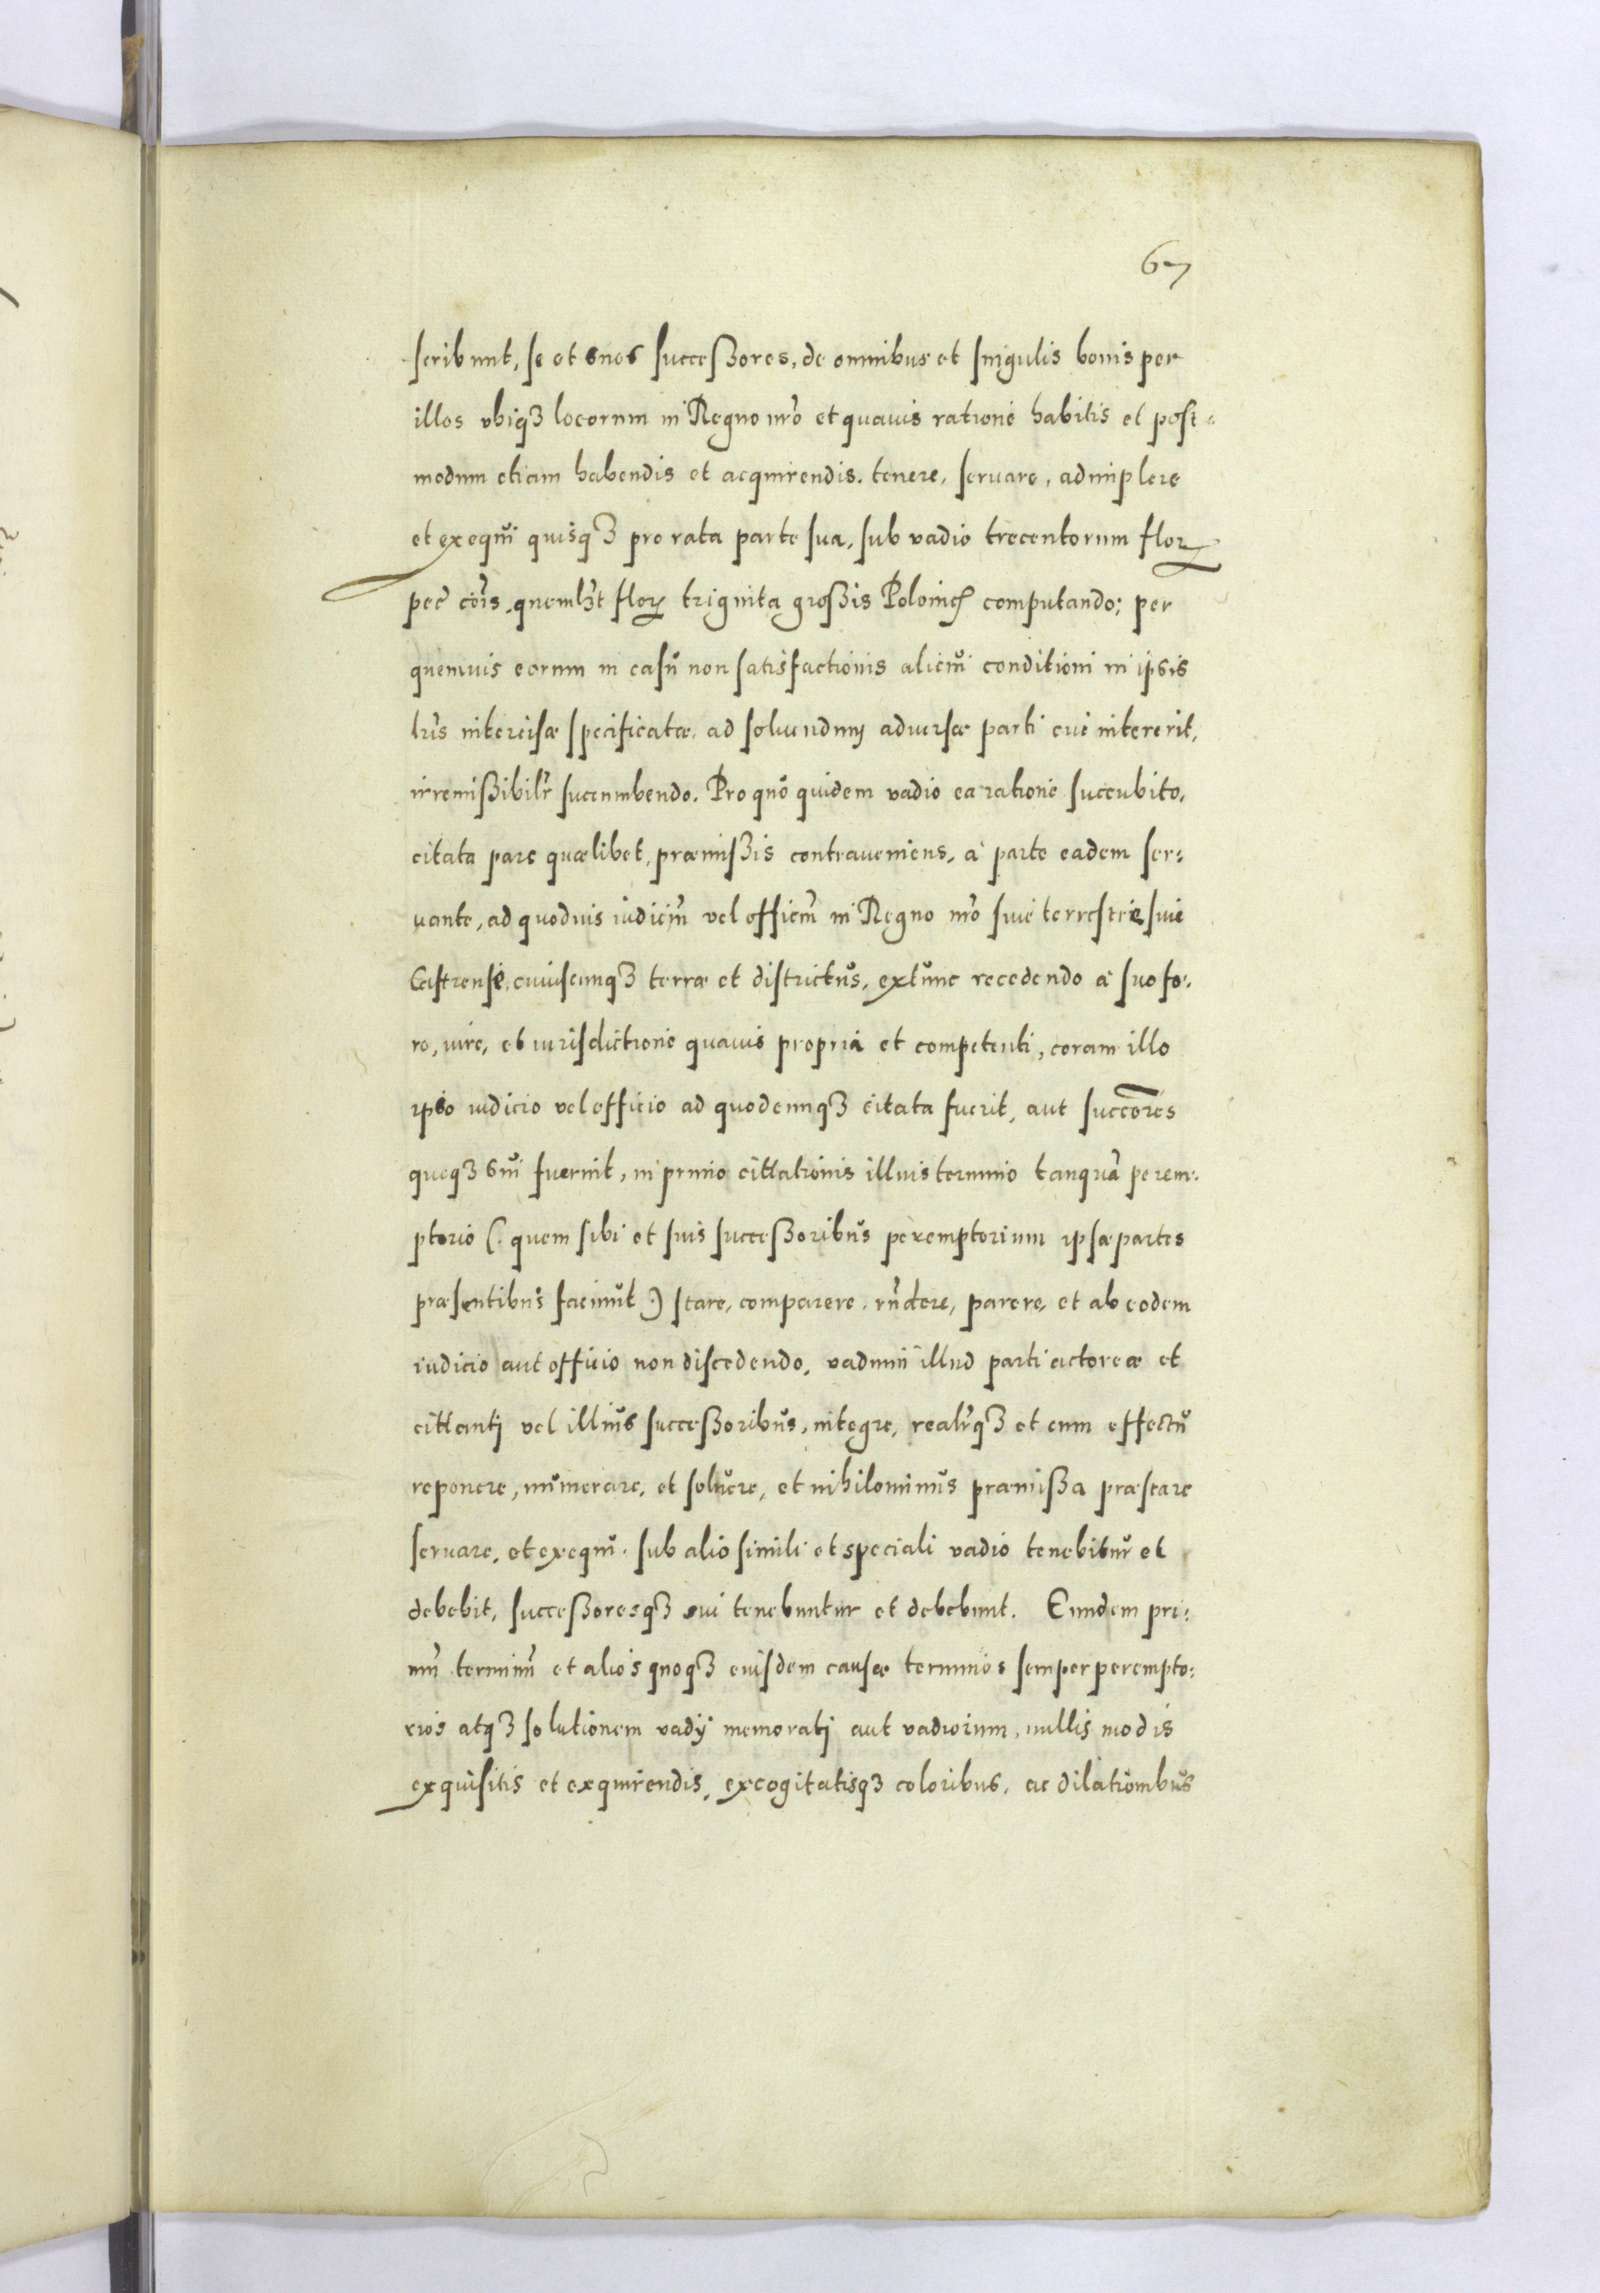 67
scribunt, se et suos successores, de omnibus et singulis bonis per
illos vbiqꝫ locorum in Regno nr̃o et quauis ratione habitis et post=
modum etiam habendis et acquirendis. tenere, seruare, adimplere
et exequi quisqꝫ pro rata parte sua, sub vadio trecentorum flor
pec̃ cõis, quemlꝫt flor triginta grossis Polonic̃ computando; per
quemuis eorum in casu non satisfactionis alicui conditioni in ipsis
lr̃is intercisæ specificatæ, ad soluendum aduersæ parti cui intererit,
irremissibilr̃ succumbendo. Pro quo quidem vadio ea ratione succubito,
citata pars quælibet, præmissis contraueniens, à parte eadem ser=
uante, ad quoduis iudiciũ vel officiũ in Regno nr̃o siue terrestre siue
Castrense, cuiuscunqꝫ terræ et districtus, extunc recedendo à suo fo=
ro, iure, et iurisdictione quauis propria et competenti, coram illo
ipso iudicio vel officio ad quodcunqꝫ citata fuerit, aut succõres
quoqꝫ sui fuerint, in primo cittationis illius termino tanquã perem=
ptorio (quem sibi et suis successoribus peremptorium ipsæ partes
præsentibus faciunt) stare, comparere, rñdere, parere, et ab eodem
iudicio aut officio non discedendo, vadium illud parti actoreæ et
cittanti vel illius successoribus, integre, realr̃qꝫ et cum effectu
reponere, numerare, et soluere, et nihilominus præmissa præstare
seruare, et exequi. sub alio simili et speciali vadio tenebitur et
debebit, successoresqꝫ sui tenebuntur et debebunt. Eundem pri=
mũ terminũ et alios quoqꝫ eiusdem causæ terminos semper perempto=
rios atqꝫ solutionem vadij memorati aut vadiorum, nullis modis
exquisitis et exquirendis, excogitatisqꝫ coloribus, ac dilationibus